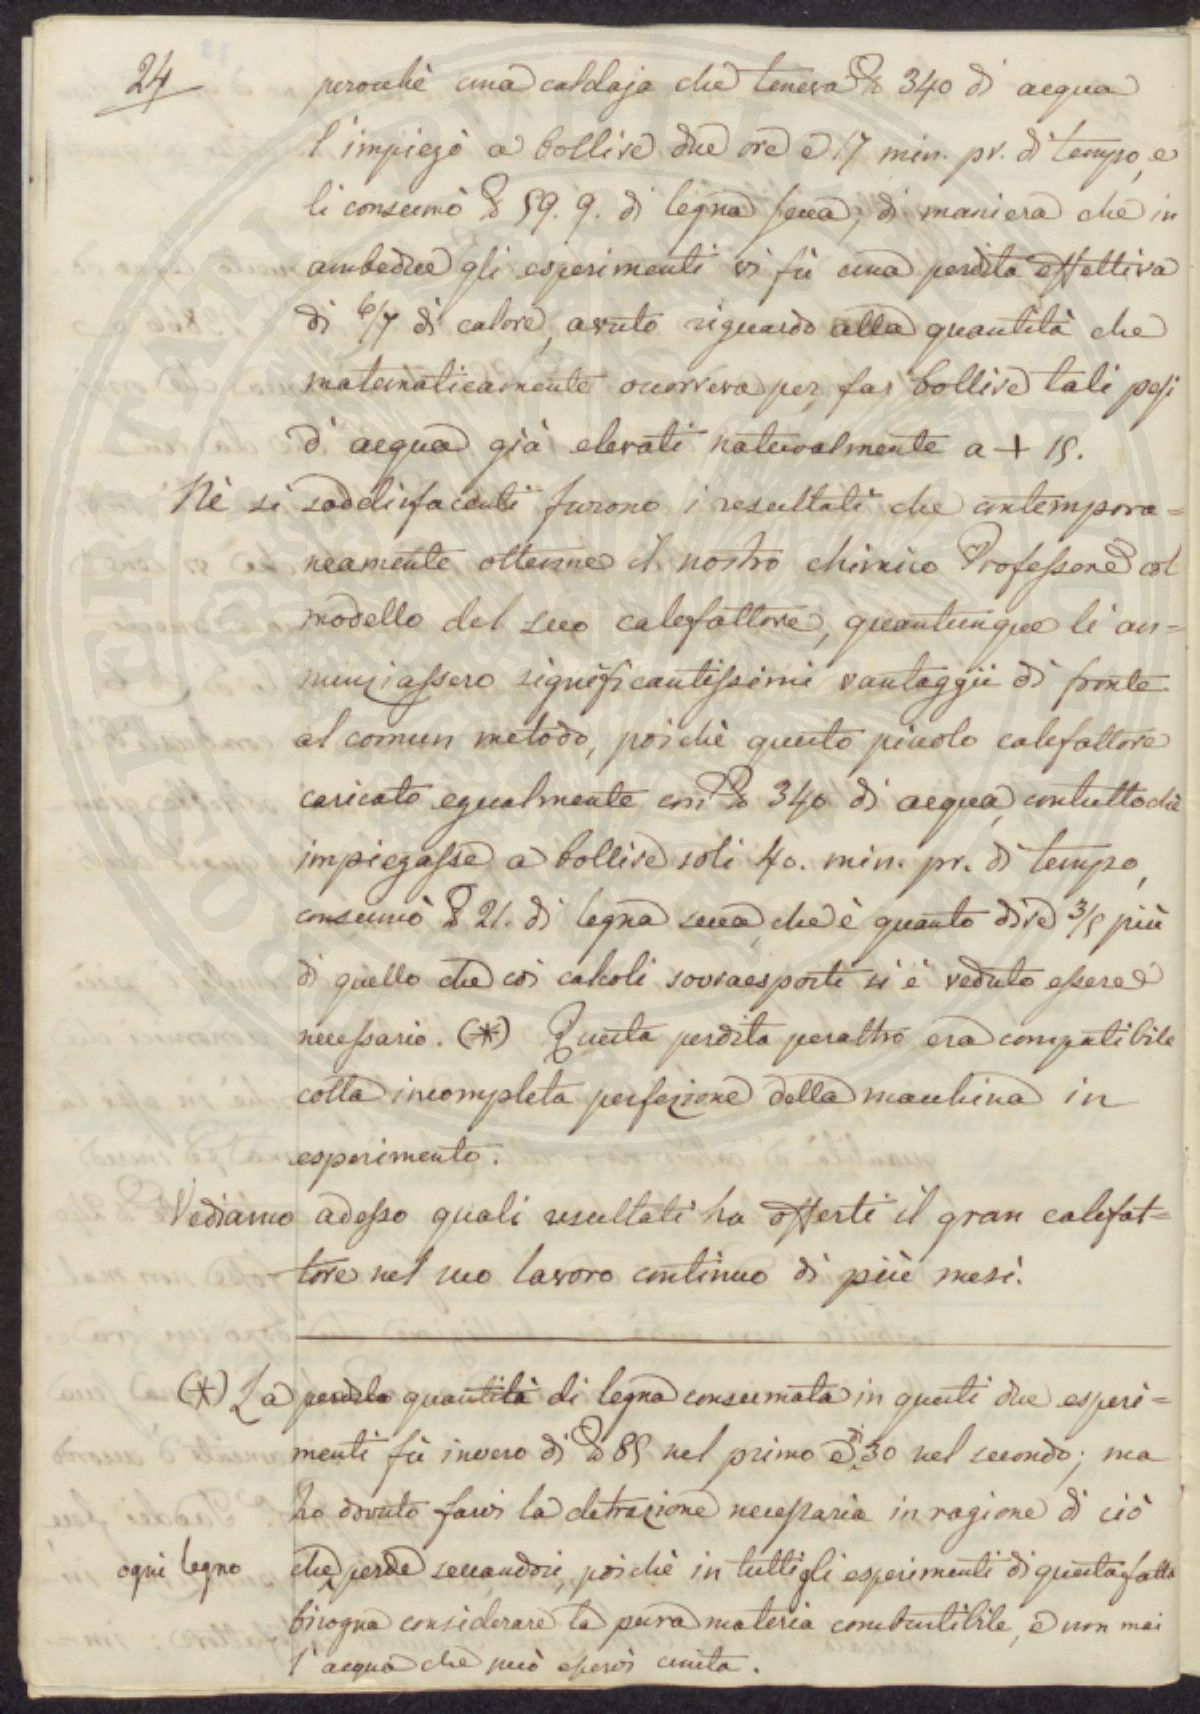 24
perocchè una caldaja che teneva ℔ 340 di acqua
l'impiegò a bollire due ore e 17 min. pr. di tempo, e
li consumò ℔ 59. 9. di legna secca, di maniera che in
ambedue gli esperimenti vi fù una perdita effettiva
di 6/7 di calore, avuto riguardo alla quantità che
matematicamente occorreva per far bollire tali pesi
d'acqua già elevati naturalmente a + 15.
Nè si soddisfacenti furono i resultati che contempora=
neamente ottenne il nostro chimico Professore col
modello del suo calefattore, quantunque li an=
nunziassero significantissimi vantaggii di fronte
al comun metodo, poichè questo piccolo calefattore
caricato egualmente con ℔ 340 di acqua, contuttochè
impiegasse a bollire soli 40. min. pr. di tempo,
consumò ℔ 21. di legna secca, che è quanto dire 3/5 più
di quello che coi calcoli sovraesposti si è veduto essere
necessario. (*) Questa perdita peraltro era compatibile
colla incompleta perfezione della macchina in
esperimento.
Vediamo adesso quali resultati ha offerti il gran calefat=
tore nel suo lavoro continuo di più mesi.
(*) La perdita quantità di legna consumata in questi due esperi=
menti fù invero di ℔ 85 nel primo e di 30 nel secondo; ma
ho dovuto farvi la detrazione necessaria in ragione di ciò
ogni legno
che perde seccandosi, poichè in tutti gli esperimenti di questa fatta
bisogna considerare la pura materia combustibile, e non mai
l'acqua che può esservi unita.